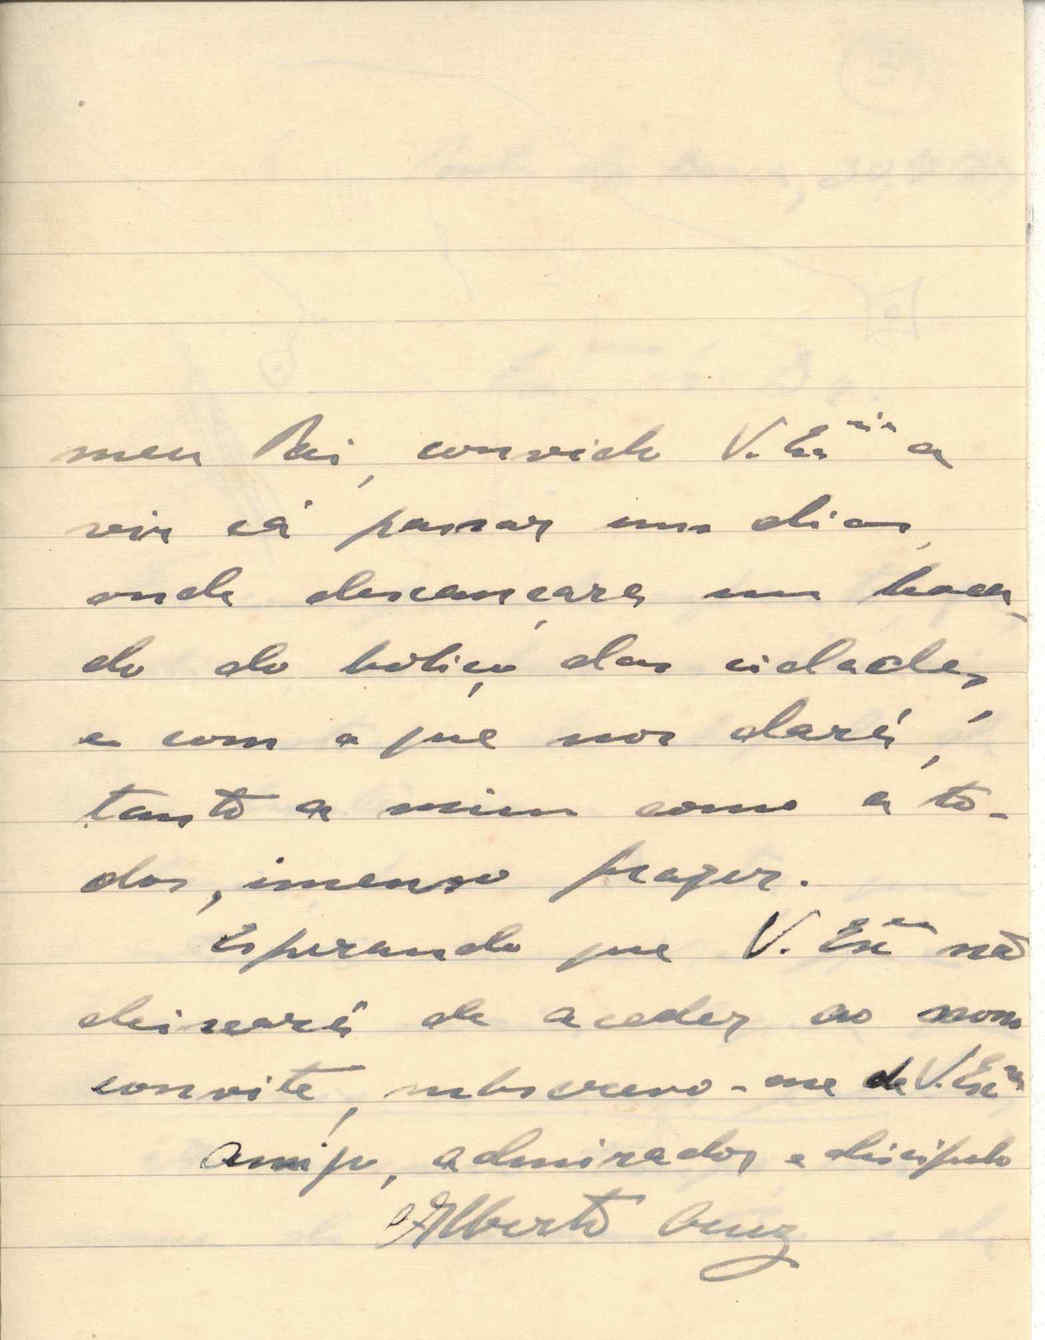 meu Pai, convido V. Exᶜⁱᵃ a
vir cá passar uns dias,
onde descançará um boca-
do do bòliço das cidades,
e com o que nos dará,
tanto a mim como a to-
dos, imenso prazer.
Esperando que V. Exᶜⁱᵃ não
deixará de aceder ao nosso
convite, subscrevo-me de V. Exᶜⁱᵃ
amigo, admirador e discipulo
Alberto Cruz